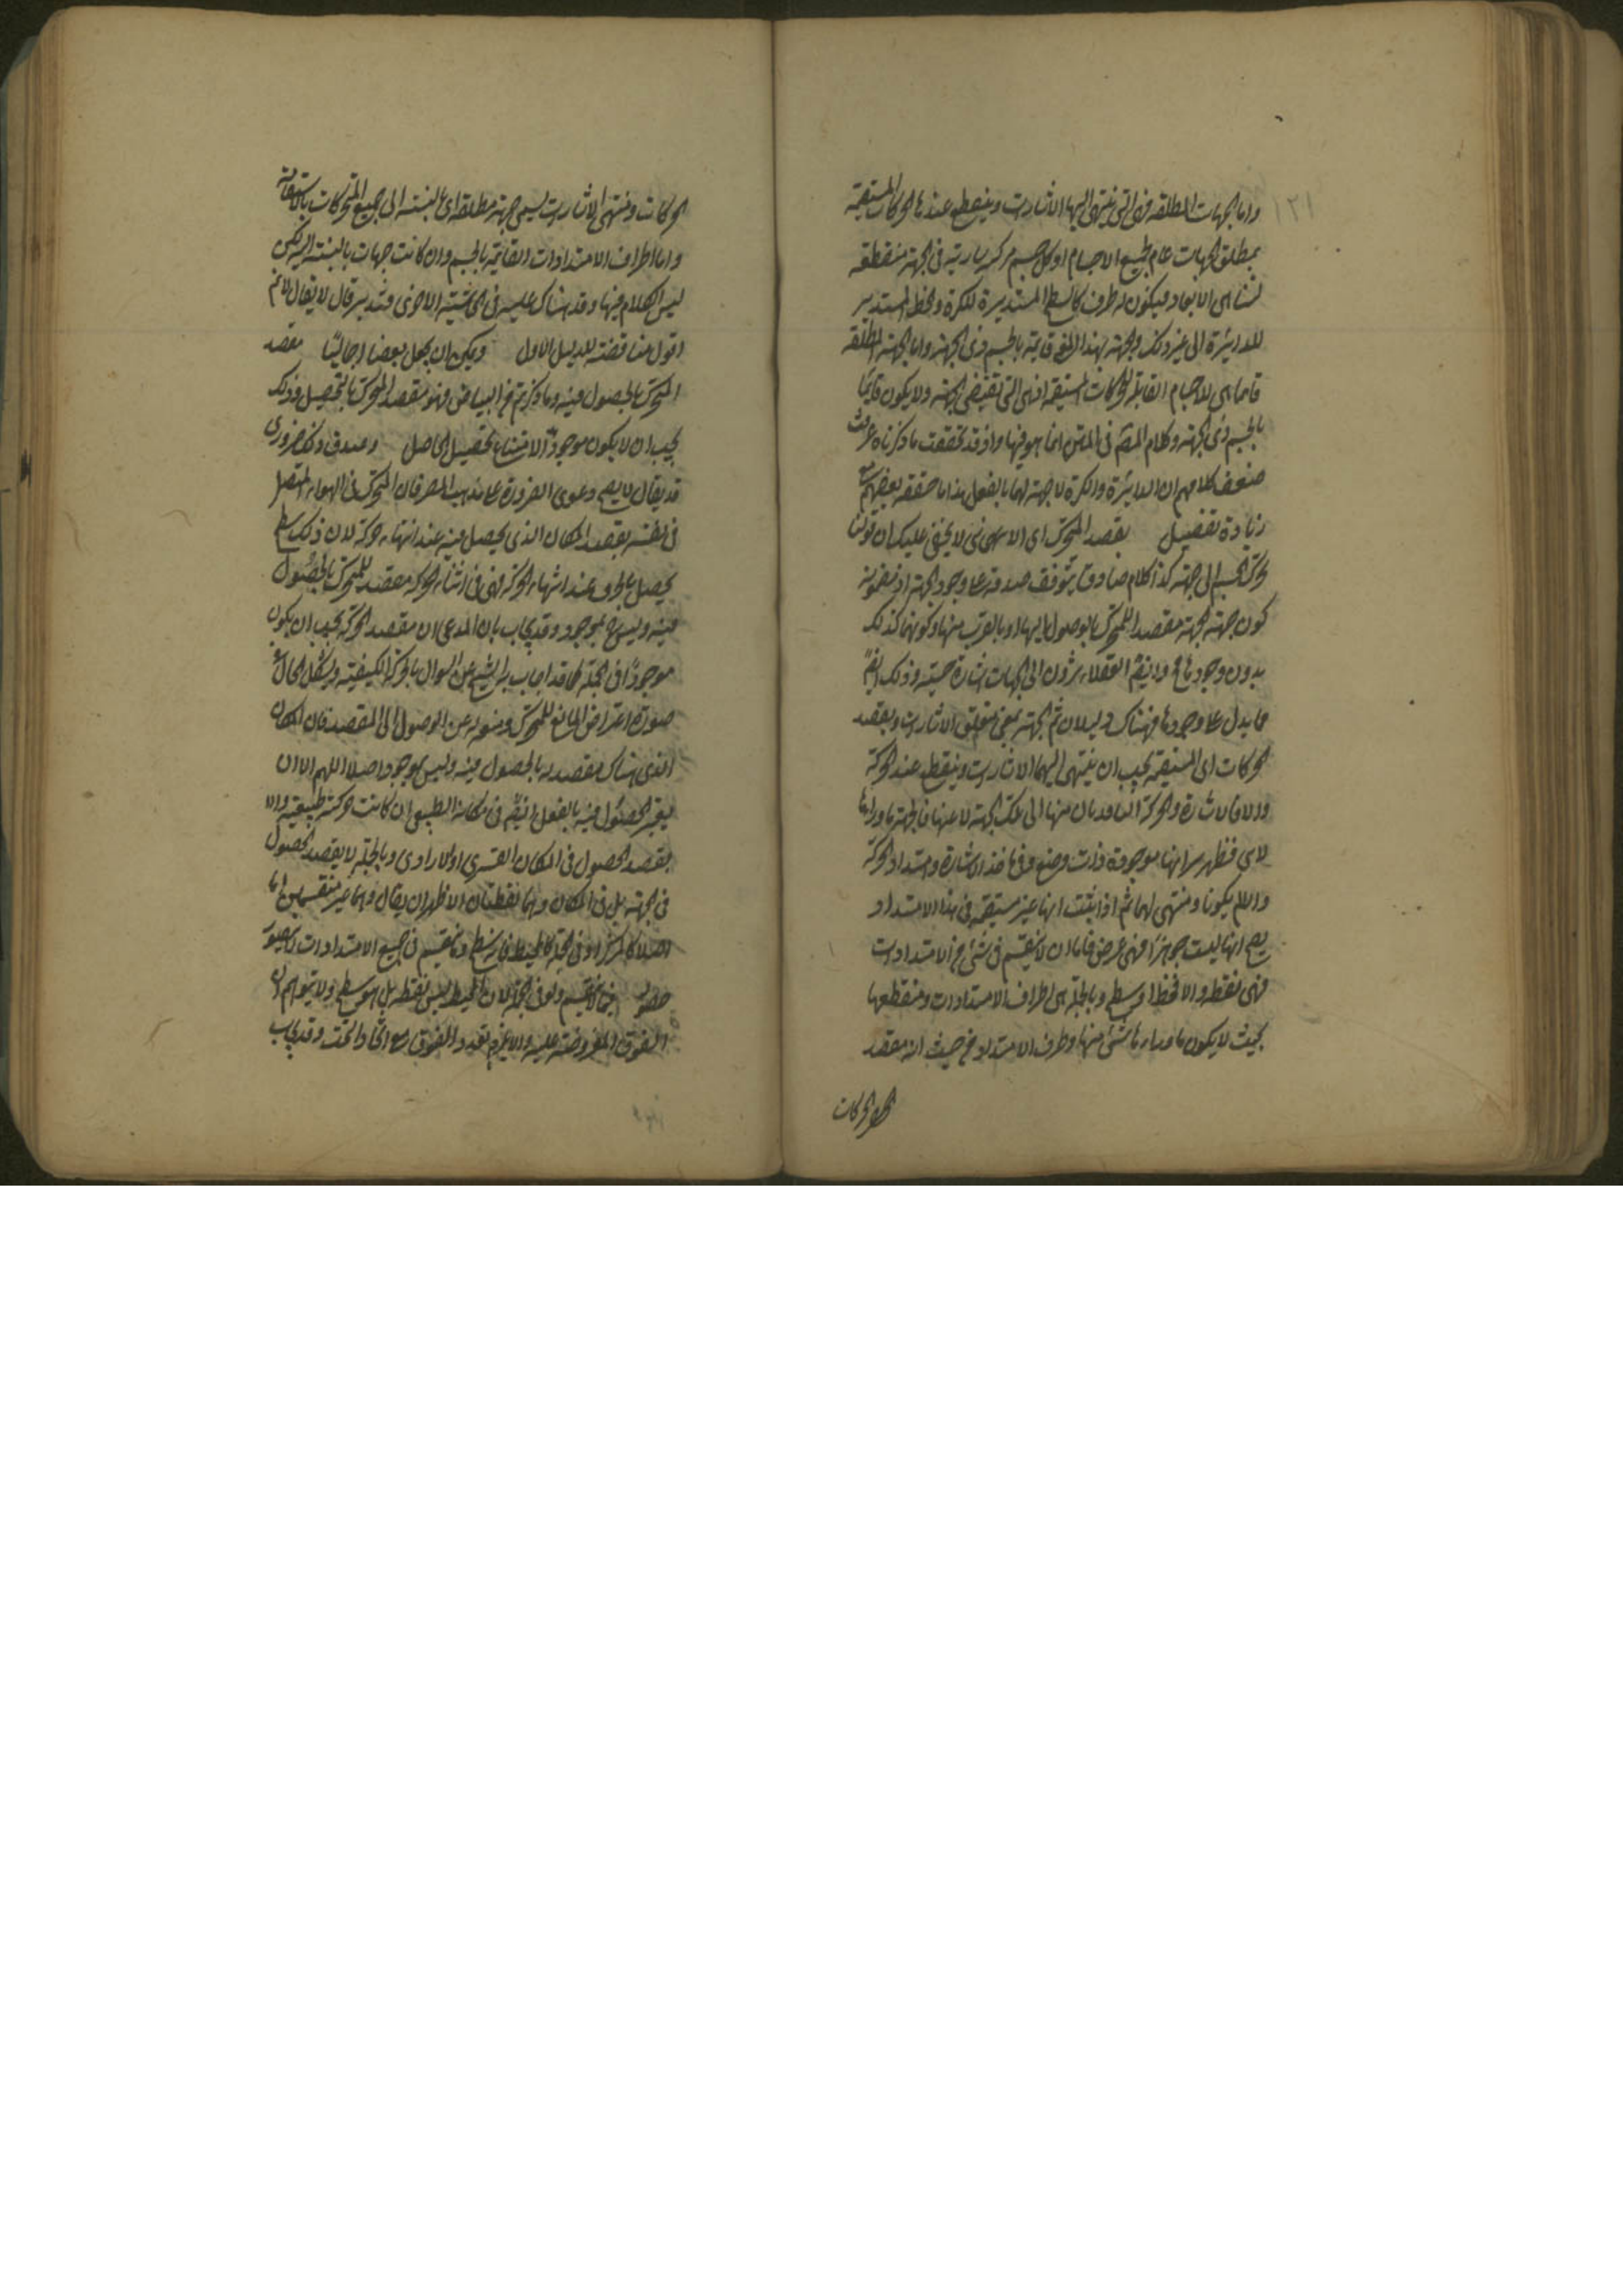 ١٢١
واما الجهات المطلقه فهى التى ينتهى اليها الاشارات وينقطع عندها الحركات المستقيمة
بمطلق الجهات عام لجميع الاجسام او كل جسم مركز فى جهة منقطعه
لتناهى الابعاد فيكون له طرف كالسطح المستدير للكرة والخط المستدير
للدائرة الى غير ذلك والجهة بهذا المعنى قايمة بالجسم ذى الجهة واما الجهة المطلقه
فانما هى للاجسام القابلة للحركات المستقيمة اذ هى التى تقتضى الجهة ولا يكون قايما
بالجسم ذى الجهة وكلام المصنف فى المتن انما هو فيها واذ قد تحققت ما ذكرناه عرفت
ضعف كلامهم ان الدائرة والكرة لا جهة لهما بالفعل هذا ما حققه بعضهم مع
زيادة تفصيل يقصد المتحرك اى الاينى لا يخفى عليك ان قولنا
تحرك الجسم الى جهة كذا كلام صادق يتوقف صدقه على وجود الجهة اذ مضمونه
كون جهة الجهة مقصد المتحرك بالوصول اليها او بالقرب منها وكونها كذلك
بدون وجودها مح وايضا العقلاء يشيرون الى الجهات اشارة حسية وذلك ايضا
مما يدل على وجودها فهناك دليلان ثم الجهة بمعنى متعلق الاشارات ومقصد
الحركات اى المستقيمة يجب ان ينتهى اليها الاشارات وينقطع عندها الحركة
والا فالاشارة والحركة النافذتان منها الى تلك الجهة لا عنها فالجهة ما وراءها
لا هى فظهر انها موجودة ذات وضع وفى ماخذ الاشارة وامتداد الحركة
والا لم يكونا ومنتهى لهما ثم اذا ثبتت انها غير منقسمة فى هذا الامتداد
يصح انها ليست جوهرا فهى عرض فاما ان لا ينقسم فى شئ من الامتدادات
فهى نقطة والا فخط او سطح وبالجملة هى اطراف الامتدادات ومنقطعها
بحيث لا يكون ما وراءها شئ منها وطرف الامتداد من حيث انه مقصد
الحركات
الحركات ومنتهى الاشارات يسمى جهة مطلقه اى بالنسبة الى جميع المتحركات بالاستقامة
واما اطراف الامتدادات القايمة بالجسم وان كانت جهات بالنسبة اليه لكن
ليس الكلام فيها وقد هناك عليه فى الحاشية الاخرى فتدبر قال لا يقال لا نم
اقول مناقضة للدليل الاول ويمكن ان يجعل نقضا اجماليا مقصد
المتحرك بالحصول فيه وما ذكرتم من البياض فهو مقصد المتحرك بالتحصيل وذلك
يجب ان لا يكون موجودا لامتناع تحصيل الحاصل وصدق ذلك ضرورى
قد يقال لا يصح دعوى الضرورة على مذهب المص فان المتحرك فى الهواء المتصل
فى نفسه يقصد المكان الذى يحصل فيه عند انتهاء حركته لان ذلك سطح
يحصل بالحرف عند انتهاء الحركة فهى فى اثناء الحركة مقصد للمتحرك بالحصول
فيه وليس ح بموجود وقد يجاب بان المدعى ان مقصد الحركة يجب ان يكون
موجودا فى الجملة كما قد اجاب به الشيخ عن السوال بالحركة الكيفية ويشكل الحال فى
صورة اعتراض المانع للمتحرك ومنعه له عن الوصول الى المقصد فان المكان
الذى هناك مقصد له بالحصول فيه وليس بموجود اصلا اللهم الا ان
يعتبر الحصول فيه بالفعل ايضا فى مكانه الطبيعى ان كانت حركته طبيعية والا
يقصد الحصول فى المكان القسرى او الارادى وبالجملة لا يقصد الحصول
فى الجهة بل فى المكان وهما نقطتان الاظهر ان يقال وهما غير منقسمين اما
اصلا كالمركز او فى الجملة كالمحيط فانه سطح وما ينقسم فى جميع الامتدادات لا يتصور
حصوله فيما لا ينقسم ولو فى الجملة لان المحيط ليس نقطه بل هو سطح ولا يتوهم ان
الفوق المفروضة عليه والا يلزم تعدد الفوق مع اتحاد التحت وقد يجاب